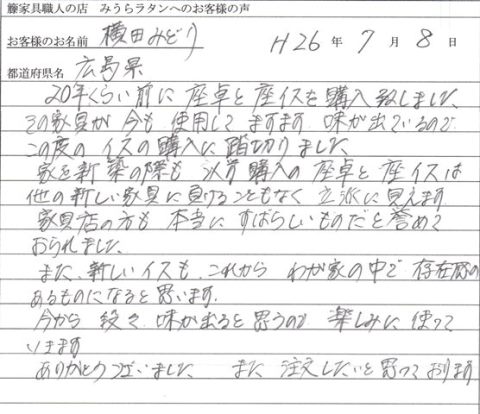 籐家具職人の店 みうらラタンへのお客様の声
お客様のお名前 横田みどり H26年 7月 8日
都道府県名 広島県
20年くらい前に 座卓と座イスを購入致しました。
その家具が今も 使用して ますます 味が出ているので
この度の イスの購入に 踏切りました。
家を新築の際も 以前購入の 座卓と座イスは
他の新しい家具に負けることもなく 立派に見えます
家具店の方も 本当に すばらしいものだと誉めて
おられました。
また、新しいイスも、これから わが家の中で 存在感の
あるものになると思います。
今から 段々 味が出ると思うので 楽しみに 使って
いきます
ありがとうございました。 また 注文したいと思っております